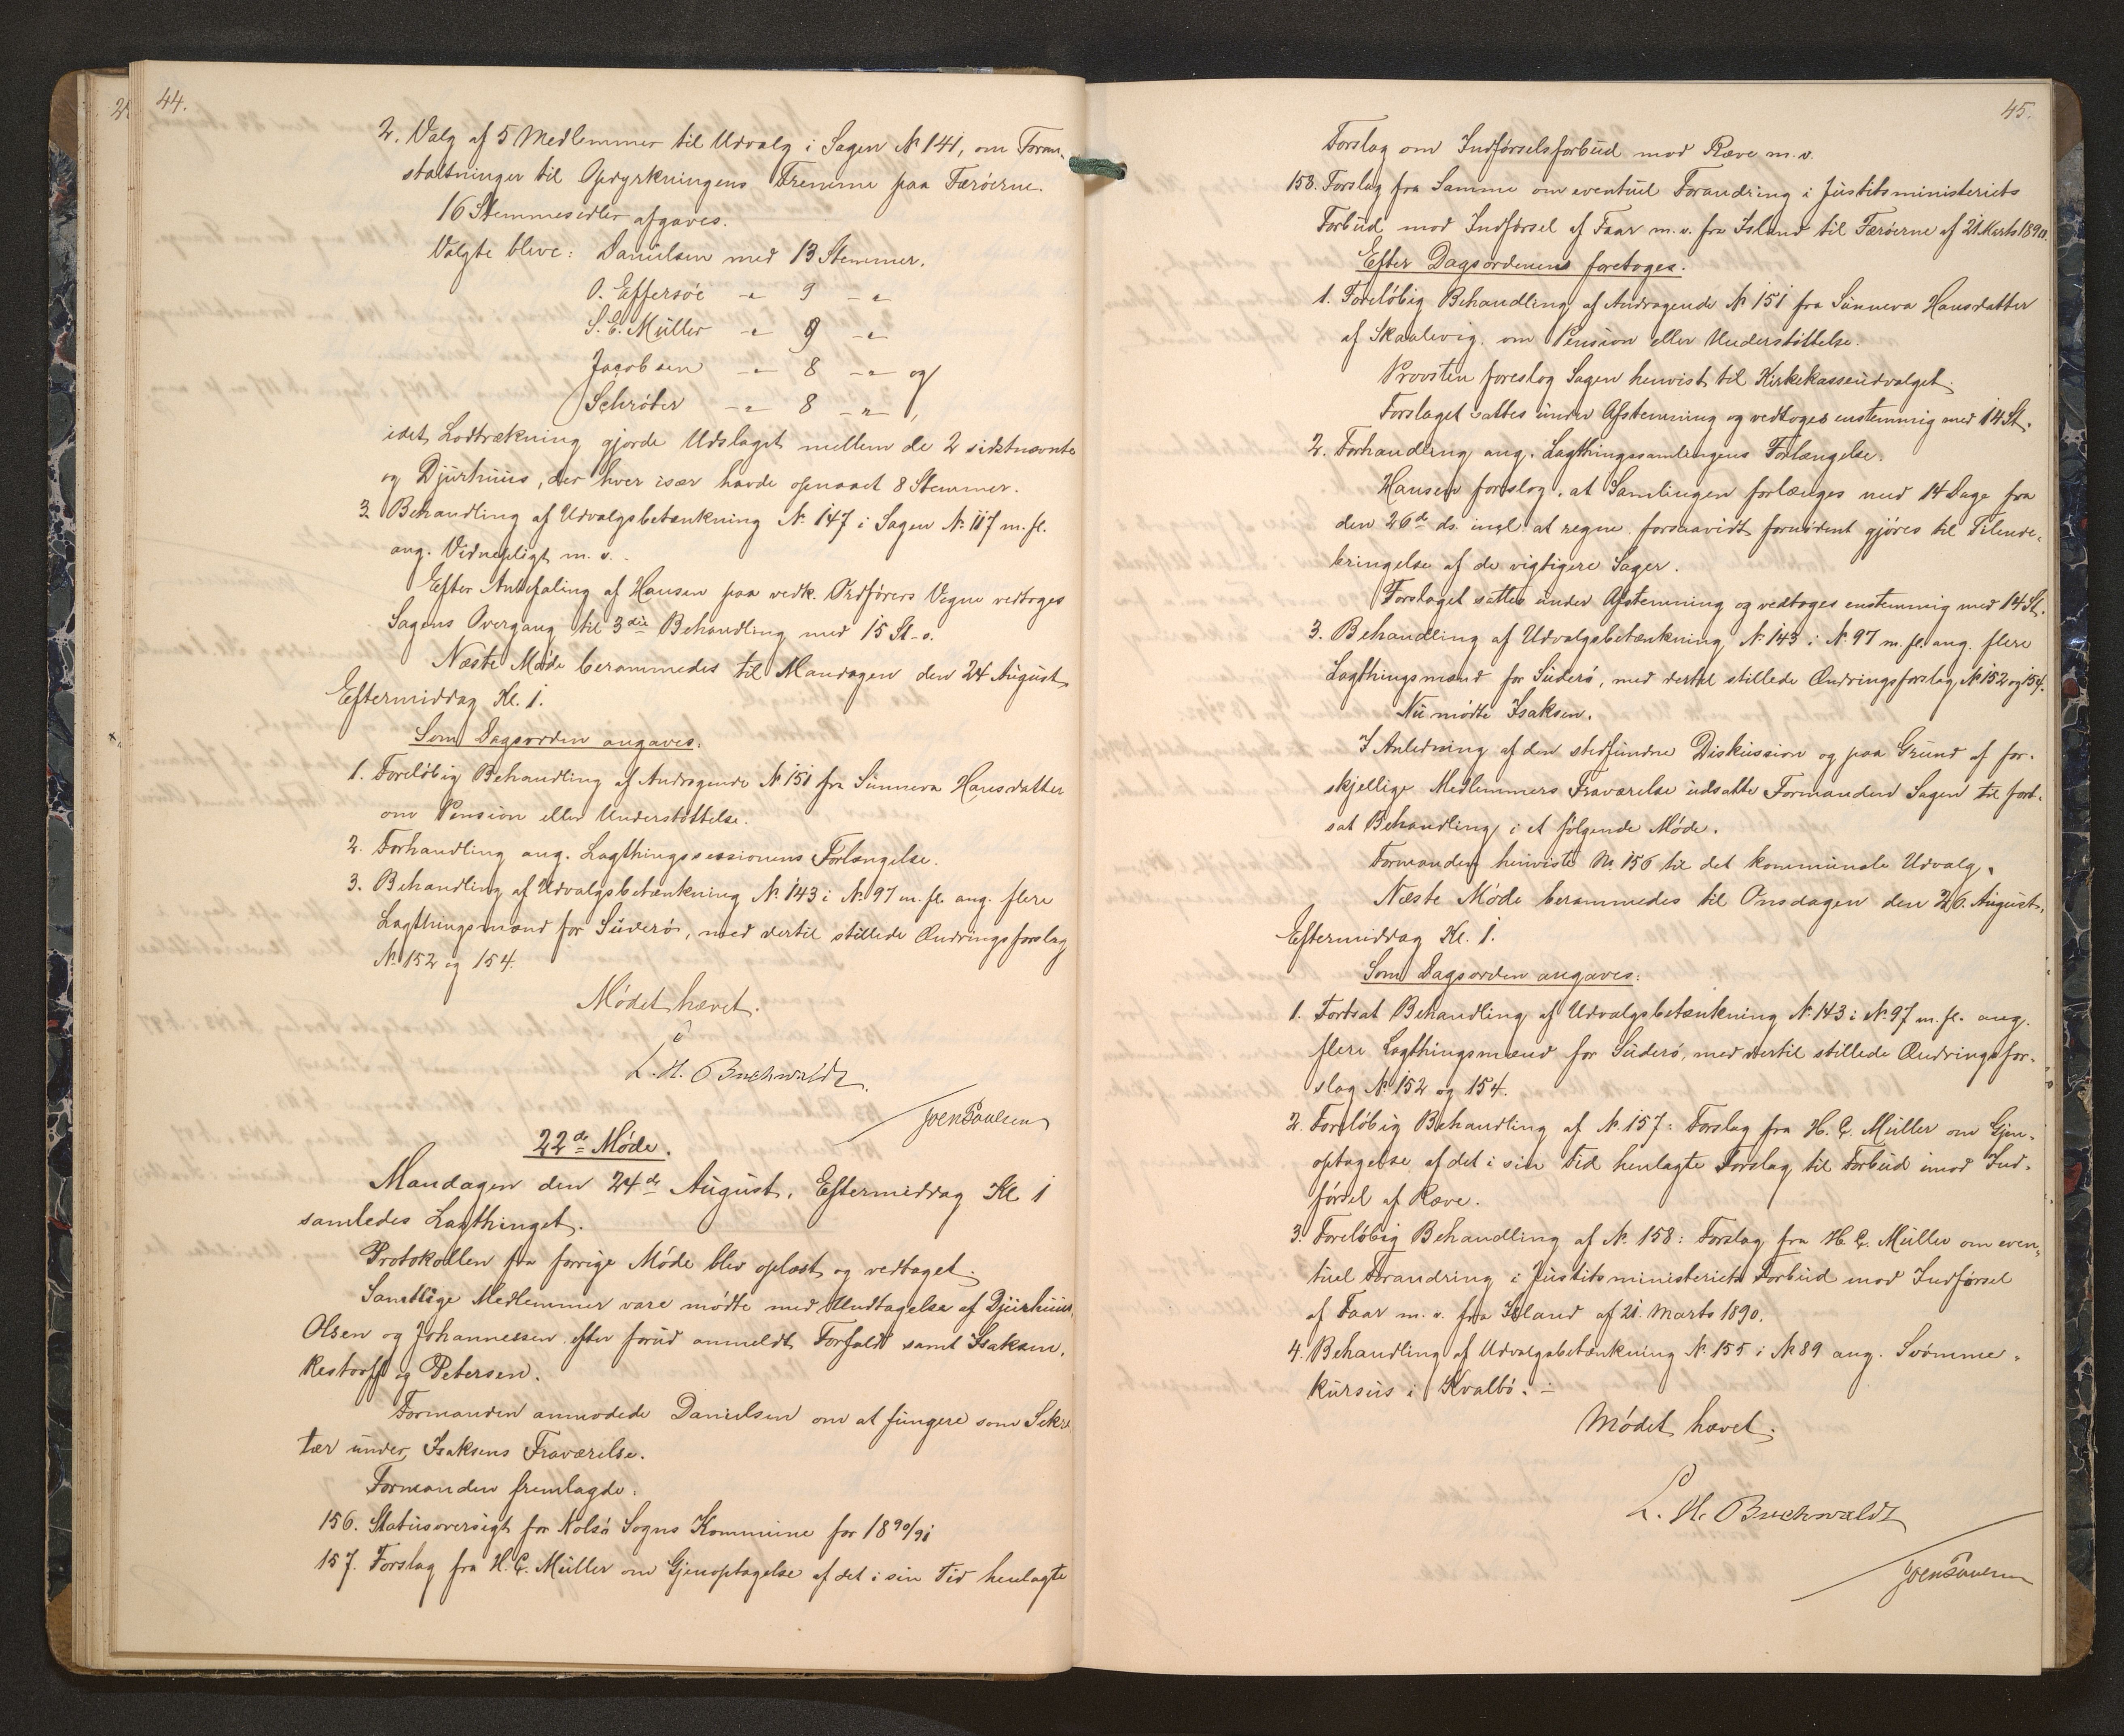 44.
2. Valg af 5 Medlemmer til Udvalg i Sagen № 141, om Foran-
staltninger til Opdyrkningens Fremme paa Færöerne.
16 Stemmesedler afgaves.
Valgte bleve: Danielsen med 13 Stemmer,
O. Effersöe -"- 9 -"-
S. E. Müller -"- 9 -"-
Jacobsen -"- 8 -"- og
Schröter -"- 8 -"-,
idet Lodtrækning gjorde Udslaget mellem de 2 sidstnævnte
og Djurhuus, der hver især havde opnaaet 8 Stemmer.
3. Behandling af Udvalgsbetænkning № 147 i Sagen № 117 m. fl.
ang. Vidnepligt m. v.
Efter Anbefaling af Hansen paa vedk. Ordförers Vegne vedtoges
Sagens Overgang til 3die Behandling med 15 St-r.
Næste Möde berammedes til Mandagen den 24 August
Eftermiddag Kl. 1.
Som Dagsorden angaves:
1. Forelöbig Behandling af Andragende № 151 fra Sunneva Hansdatter
om Pension eller Understöttelse.
2. Forhandling ang. Lagthingssessionens Forlængelse.
3. Behandling af Udvalgsbetænkning № 143 i № 97 m. fl. ang. flere
Lagthingsmænd for Suderö, med dertil stillede Ændringsforslag
№ 152 og 154.
Mödet hævet.
L. H. Buchwaldt.
Joen Poulsen
22de Möde.
Mandagen den 24de August, Eftermiddag Kl 1
samledes Lagthinget.
Protokollen fra forrige Möde blev oplæst og vedtaget.
Samtlige Medlemmer vare mödte med Undtagelse af Djurhuus,
Olsen og Johannessen efter forud anmeldt Forfald samt Isaksen,
Restorff og Petersen.
Formanden anmodede Danielsen om at fungere som Sekre-
tær under Isaksens Fraværelse.
Formanden fremlagde:
156. Statusoversigt for Nolsö Sogns Kommune for 1890/91
157. Forslag fra H. C. Müller om Gjenoptagelse af det i sin Tid henlagte
45.
Forslag om Indförselsforbud mod Ræve m. v.
158. Forslag fra Samme om eventuel Forandring i Justitsministeriets
Forbud mod Indförsel af Faar m. v. fra Island til Færöerne af 21. Marts 1890.
Efter Dagsordenen foretoges:
1. Forelöbig Behandling af Andragende № 151 fra Sunneva Hansdatter
af Skaalevig om Pension eller Understöttelse.
Provsten foreslog Sagen henvist til Kirkekasseudvalget.
Forslaget sattes under Afstemning og vedtoges enstemmig med 14 St.
2. Forhandling ang. Lagthingssamlingens Forlængelse.
Hansen foreslog, at Samlingen forlænges med 14 Dage fra
den 26de ds. incl. at regne forsaavidt fornödent gjöres til Tilende-
bringelse af de vigtigere Sager.
Forslaget sattes under Afstemning og vedtoges enstemmig med 14 St.
3. Behandling af Udvalgsbetænkning № 143 i № 97 m. fl. ang. flere
Lagthingsmænd for Suderö, med dertil stillede Ændringsforslag № 152 og 154.
Nu mödte Isaksen.
I Anledning af den stedfundne Diskussion og paa Grund af for-
skjellige Medlemmers Fraværelse udsatte Formanden Sagen til fort-
sat Behandling i et fölgende Möde.
Formanden henviste № 156 til det kommunale Udvalg.
Næste Möde berammedes til Onsdagen den 26. August,
Eftermiddag Kl. 1.
Som Dagsorden angaves:
1. Fortsat Behandling af Udvalgsbetænkning № 143 i № 97 m. fl. ang.
flere Lagthingsmænd for Suderö, med dertil stillede Ændringsfor-
slag № 152 og 154.
2. Forelöbig Behandling af № 157: Forslag fra H. C. Müller om Gjen-
optagelse af det i sin Tid henlagte Forslag til Forbud imod Ind-
försel af Ræve.
3. Forelöbig Behandling af № 158: Forslag fra H. C. Müller om even-
tuel Forandring i Justitsministeriets Forbud mod Indförsel
af Faar m. v. fra Island af 21. Marts 1890.
4. Behandling af Udvalgsbetænkning № 155 i № 89 ang. Svömme-
kursus i Kvalbö. -
Mödet hævet.
L. H. Buchwaldt
Joen Poulsen